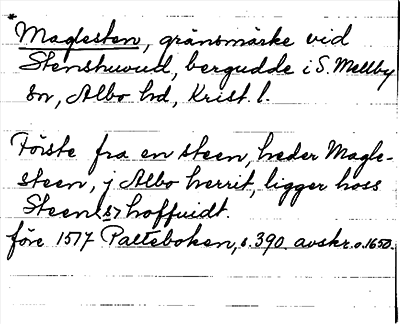 *Maglesten, gränsmärke vid
Stenshuvud, bergudde i S. Mellby
sn, Albo hd, Krist. l.
Förste fra en steen, heder Magle-
steen, j Albo herrit, ligger hoss
Steen(s)hoffuidt.
före 1517 Palteboken, s. 390. avskr. o. 1650.